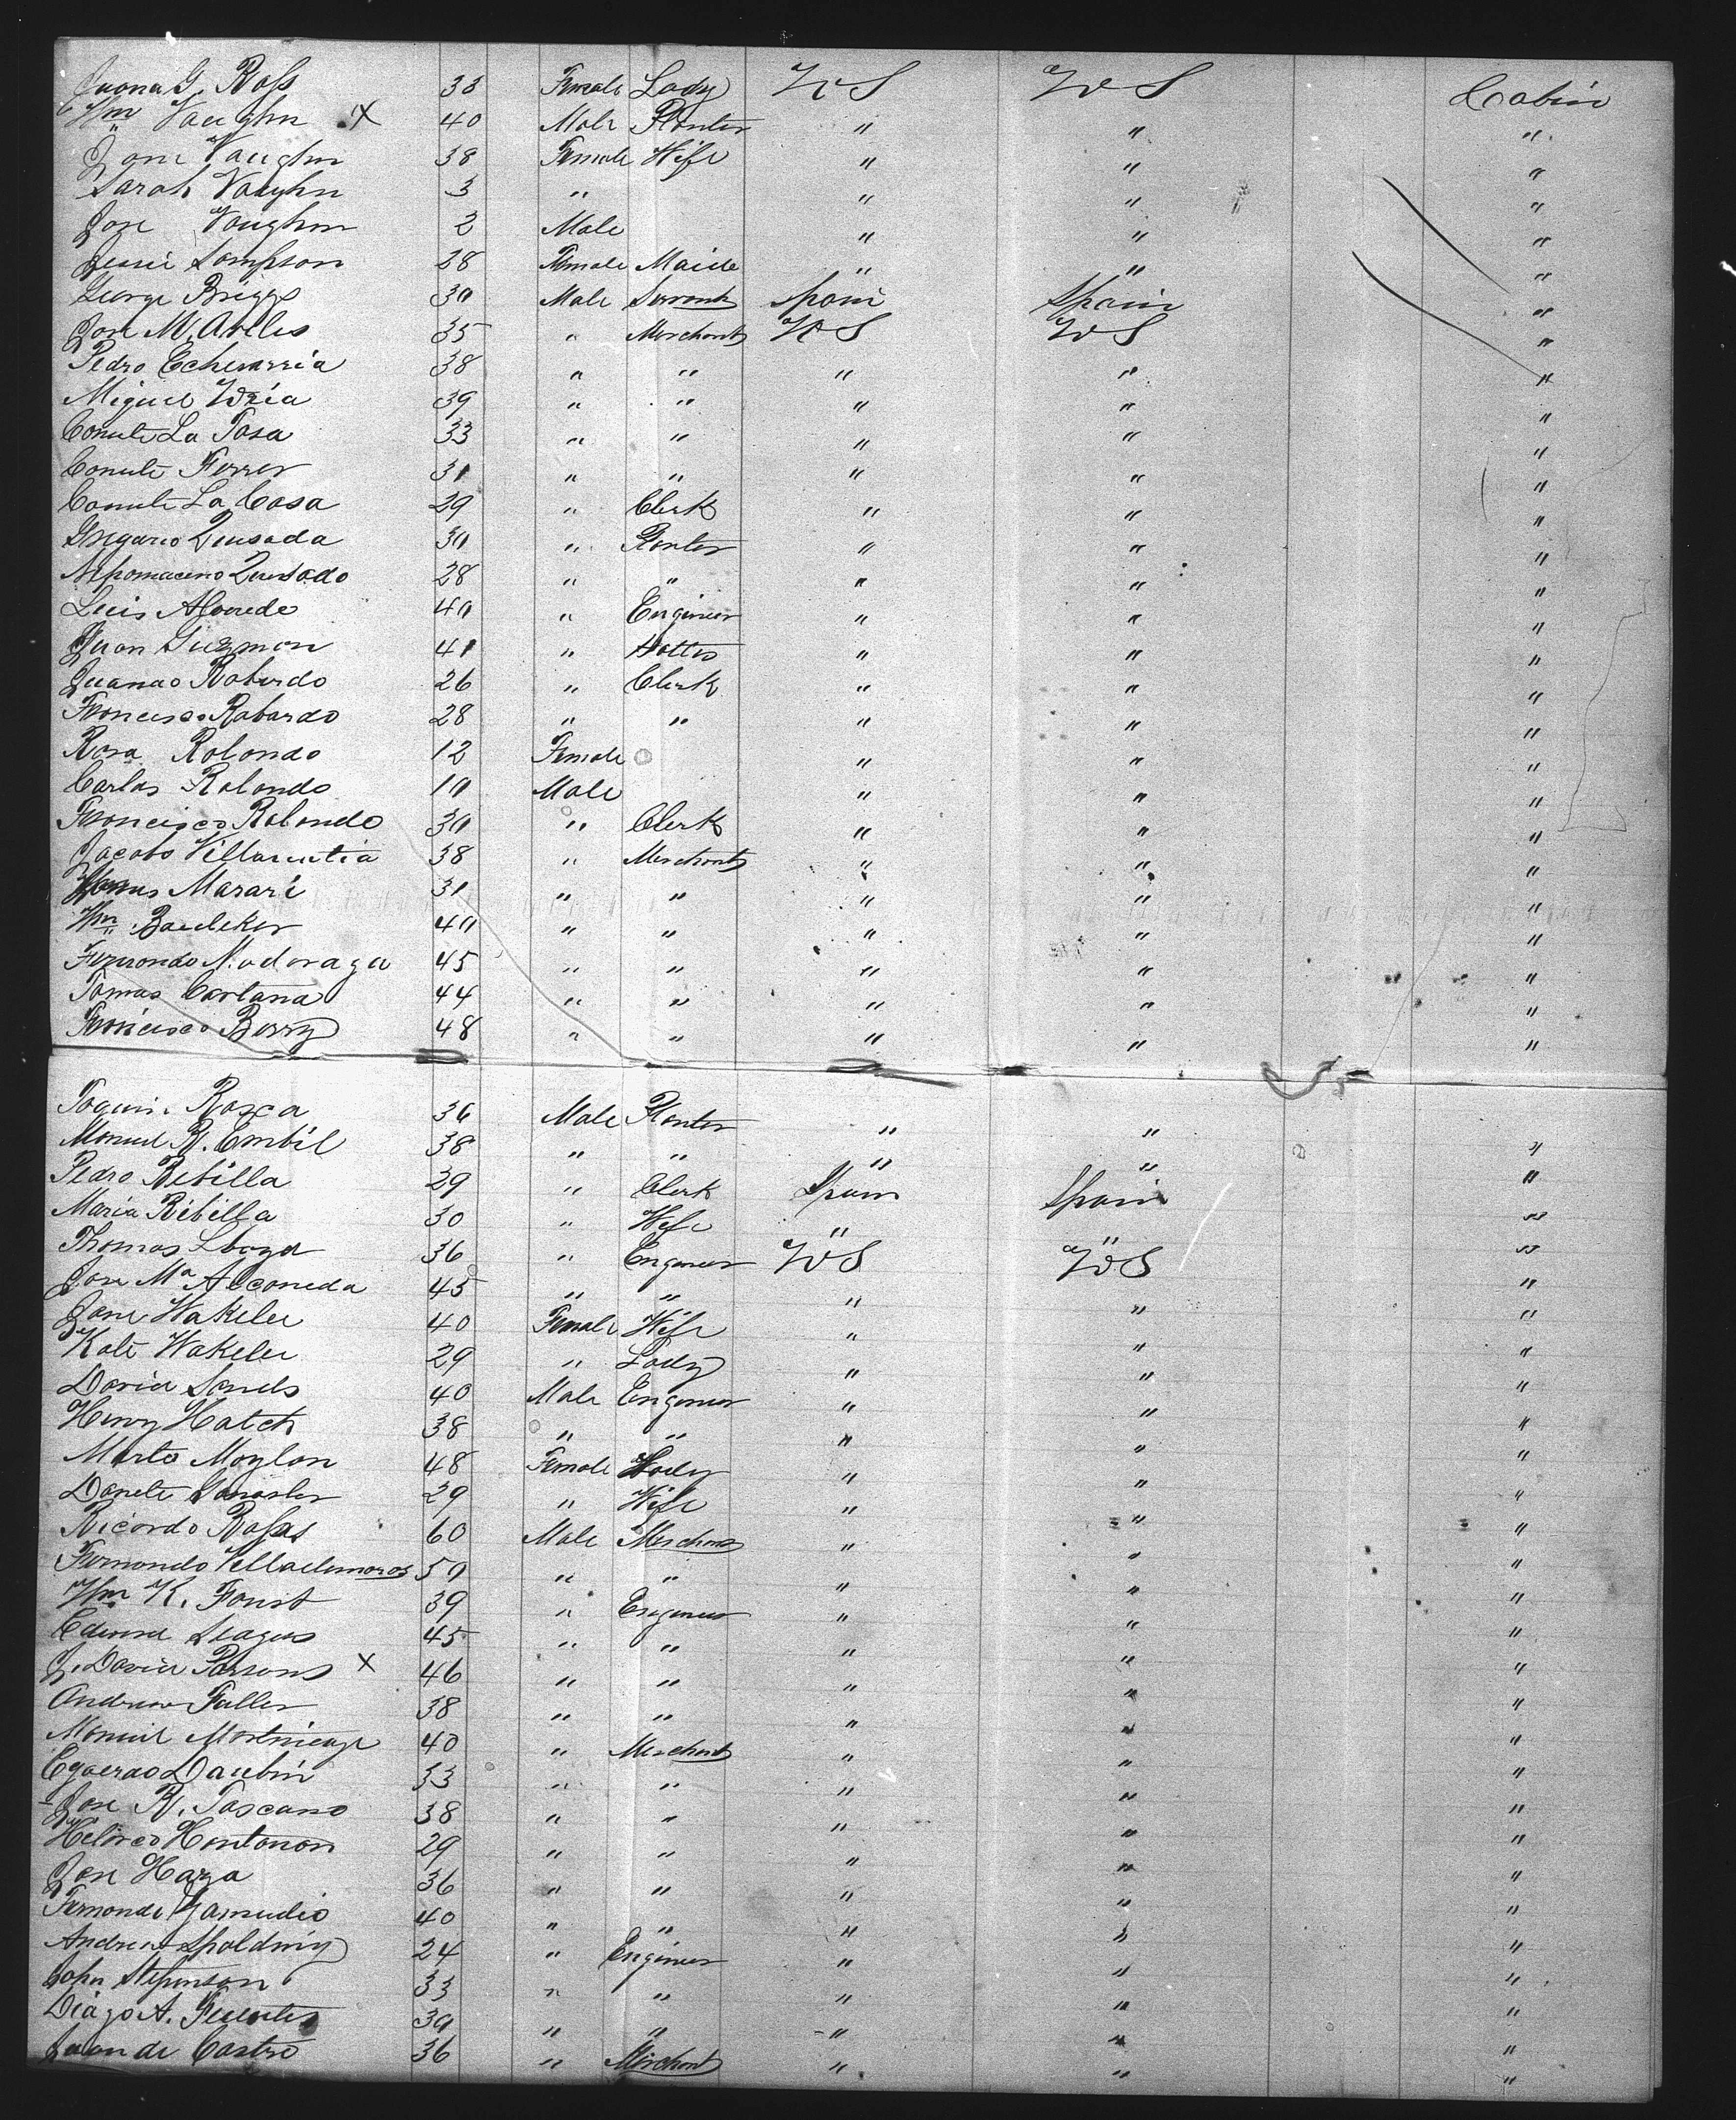 Juana G. Ross 33 Female Lady U S U S Cabin
Wm Vaughn X 40 Male Planter " " "
Jane Vaughn 38 Female Wife " " "
Sarah Vaughn 3 " " " "
Jose Vaughn 2 Male " " "
Jessie Sampson 28 Female Maide " " "
George Briggs 30 Male Servant Spain Spain "
Jose M. Aviles 35 " Merchant U S U S "
Pedro Echevarria 38 " " " " "
Miguel 39 " " " " "
Conute La Tasa 33 " " " " "
Conute Ferrer 31 " " " " "
Conute La Casa 29 " Clerk " " "
Gregario Quesada 30 " Planter " " "
Nepomaceno Quesado 28 " " " " "
Luis 40 " Engineer " " "
Juan Guzman 41 " " " "
Juanao Robardo 26 " Clerk " " "
Francisco Robardo 28 " " " " "
Rosa Rolondo 12 Female " " "
Carlos Rolondo 10 Male " " "
Francisco Rolondo 30 " Clerk " " "
Jacobo Villarutia 38 " Merchant " " "
Marari 31 " " " " "
Wm Baueleker 40 " " " " "
Fernando Madoraga 45 " " " " "
Tomas Cartana 44 " " " " "
Francisco Berry 48 " " " " "
Toquin Rosca 36 Male Planter " " "
Manuel R. Embil 38 " " " " "
Pedro Rebilla 29 " Clerk Spain Spain "
Maria Ribilla 30 " Wife " " "
Thomas Lloyd 36 " Engineer U S U S "
Jose Ma Alconeda 45 " " " " "
Jane Wakelee 40 Female Wife " " "
Kate Wakelee 29 " Lady " " "
David Sands 40 Male Engineer " " "
Henry Hatch 38 " " " " "
Marta Moylan 48 Female Lady " " "
Danete 29 " Wife " " "
Ricardo Rosas 60 Male Merchant " " "
Fernando Villaelmoros 50 " " " " "
Wm K. Foust 39 " Engineer " " "
Edward Seagus 45 " " " " "
J. David Parsons X 46 " " " " "
Andrew Fuller 38 " " " " "
Manuel Martinienze 40 " Merchant " " "
Egaerao Daubin 33 " " " " "
Jose R. Toscano 38 " " " " "
Heliroo Hontonon 29 " " " " "
Jose Haza 36 " " " " "
Fernando Zamudio 40 " " " " "
Andrew Spalding 24 " Engineer " " "
John Stepenson 33 " " " " "
Diago A. Fuentes 30 " " " " "
Juan de Castro 36 " Merchant " " "